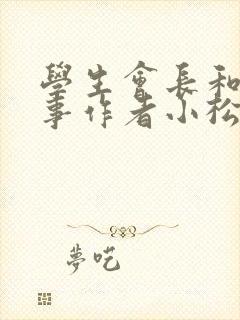 學生會長和
事作者小松
夢吃